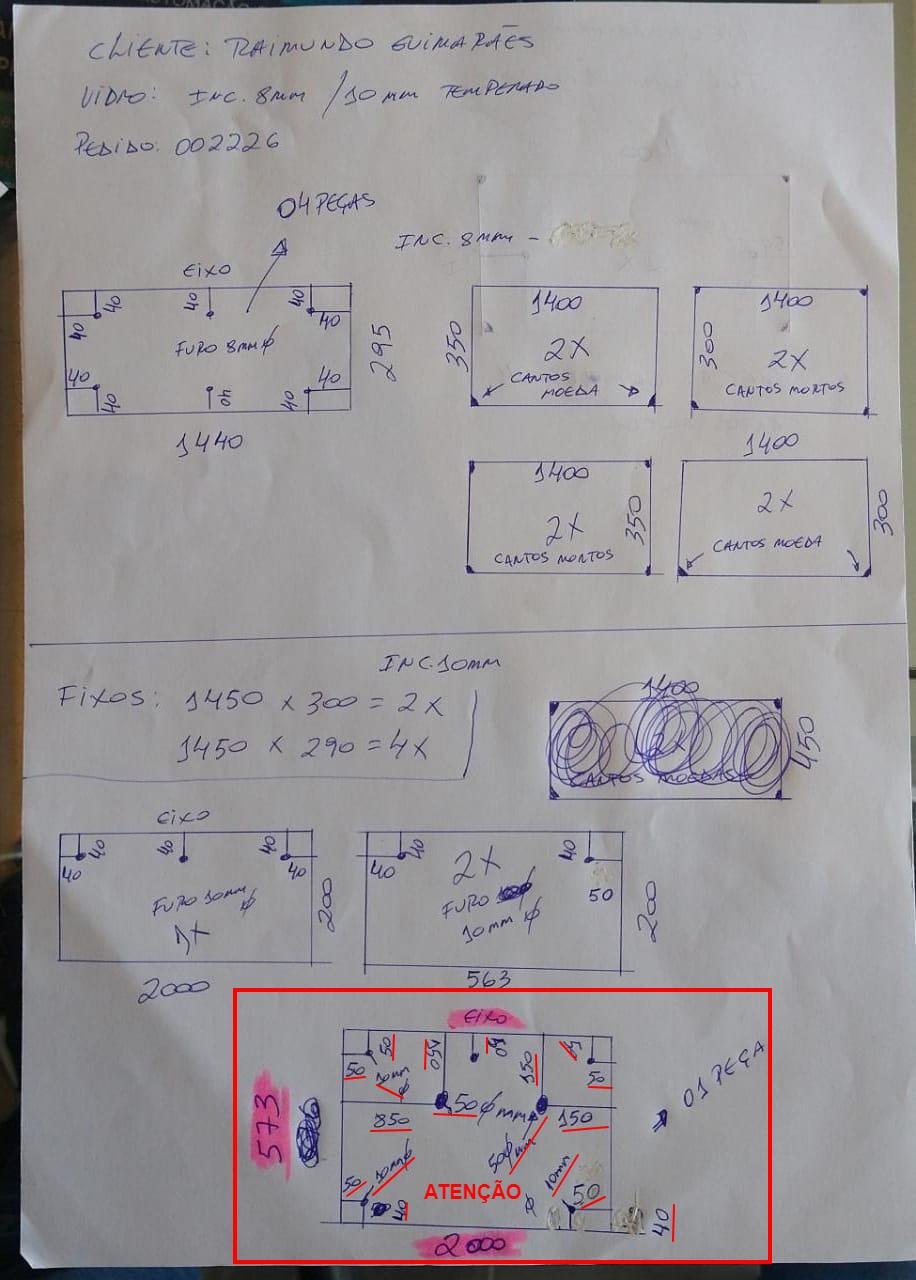 CLIENTE: RAIMUNDO GUIMARÃES
VIDRO: INC. 8mm / 10mm TEMPERADO
PEDIDO: 002226
04 PEÇAS
INC. 8mm -
EIXO
40 40 40 40 40
FURO 8mm ϕ
40 40 40 40 40
295
1440
1400
350
2X
CANTOS MOEDA
1400
300
2X
CANTOS MORTOS
1400
2X
350
CANTOS MORTOS
1400
2X
300
CANTOS MOEDA
INC. 10mm
FIXOS: 1450 X 300 = 2X
1450 X 290 = 4X
1400
450
CANTOS MOEDAS
EIXO
40 40 40 40 40
FURO 10mm ϕ
1X
200
2000
40 40 40
2X
50
FURO
10mm ϕ
200
563
EIXO
50 50 150 50 150 50
10mm ϕ
50 ϕ mm
850
150
573
50 10mm ϕ
50 ϕ mm
10mm ϕ
50
40
ATENÇÃO
40
2000
01 PEÇA